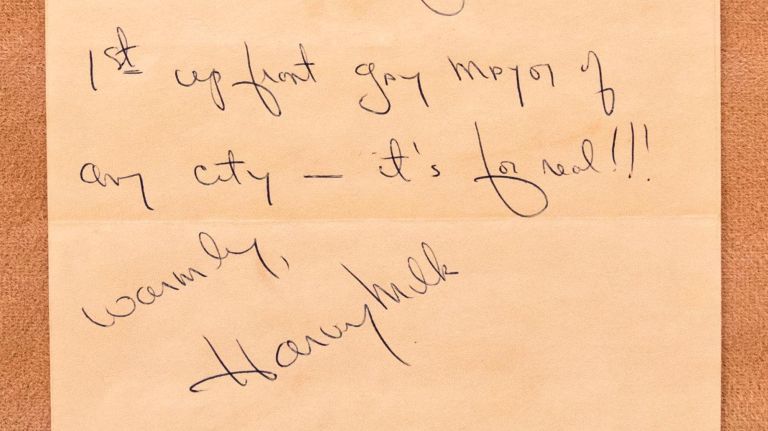 1st up front gay mayor of
any city — it's for real!!!
warmly,
Harvey Milk